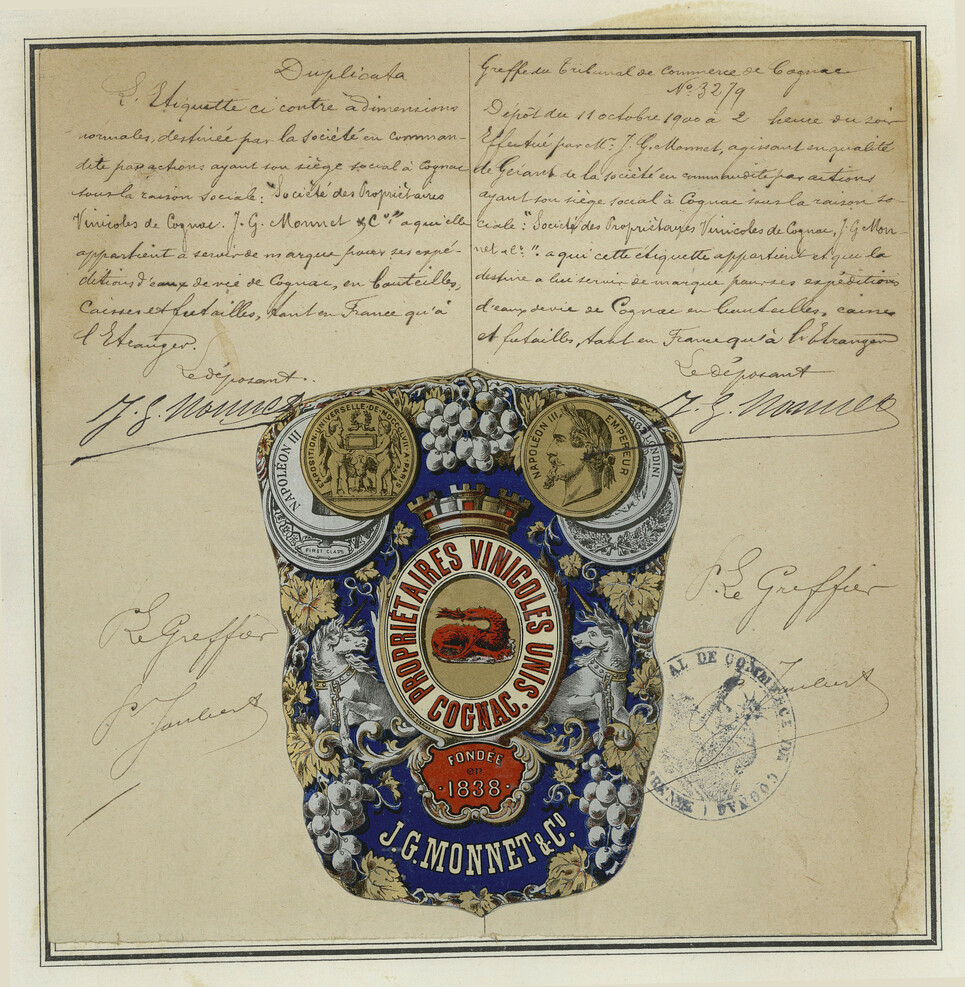 Duplicata
L'Etiquette ci contre à dimensions
normales, destinée par la Société en comman-
dite par actions ayant son siège social à Cognac
sous la raison sociale: "Société des Propriétaires
Vinicoles de Cognac. J. G. Monnet & Co" a qu'elle
appartient à servir de marque pour ses expé-
ditions d'eaux de vie de Cognac, en bouteilles,
Caisses et futailles, tant en France qu'à
l'Etranger.
Le déposant.
J. G. Monnet
Le Greffier
Joubert
Greffe du Tribunal de Commerce de Cognac
No. 3279
Dépôt du 11 octobre 1900 à 2 heure du soir
Effectué par Mr. J. G. Monnet, agissant en qualité
de Gérant de la société en commandite par actions
ayant son siège social à Cognac sous la raison so-
ciale: "Société des Propriétaires Vinicoles de Cognac, J. G. Mon-
net & Co". a qui cette étiquette appartient et qui la
destine a lui servir de marque pour ses expéditions
d'eaux de vie de Cognac en bouteilles, caisses
et futailles, tant en France qu'à l'Etranger
Le déposant
J. G. Monnet
Le Greffier
Joubert
NAPOLÉON III
EXPOSITION UNIVERSELLE DE MDCCCLXVII A PARIS
FIRST CLASS
NAPOLEON III EMPEREUR
LONDINI
PROPRIÉTAIRES VINICOLES UNIS
COGNAC.
FONDÉE
en
1838
J. G. MONNET & Co.
AL DE COMMERCE DE COGNAC